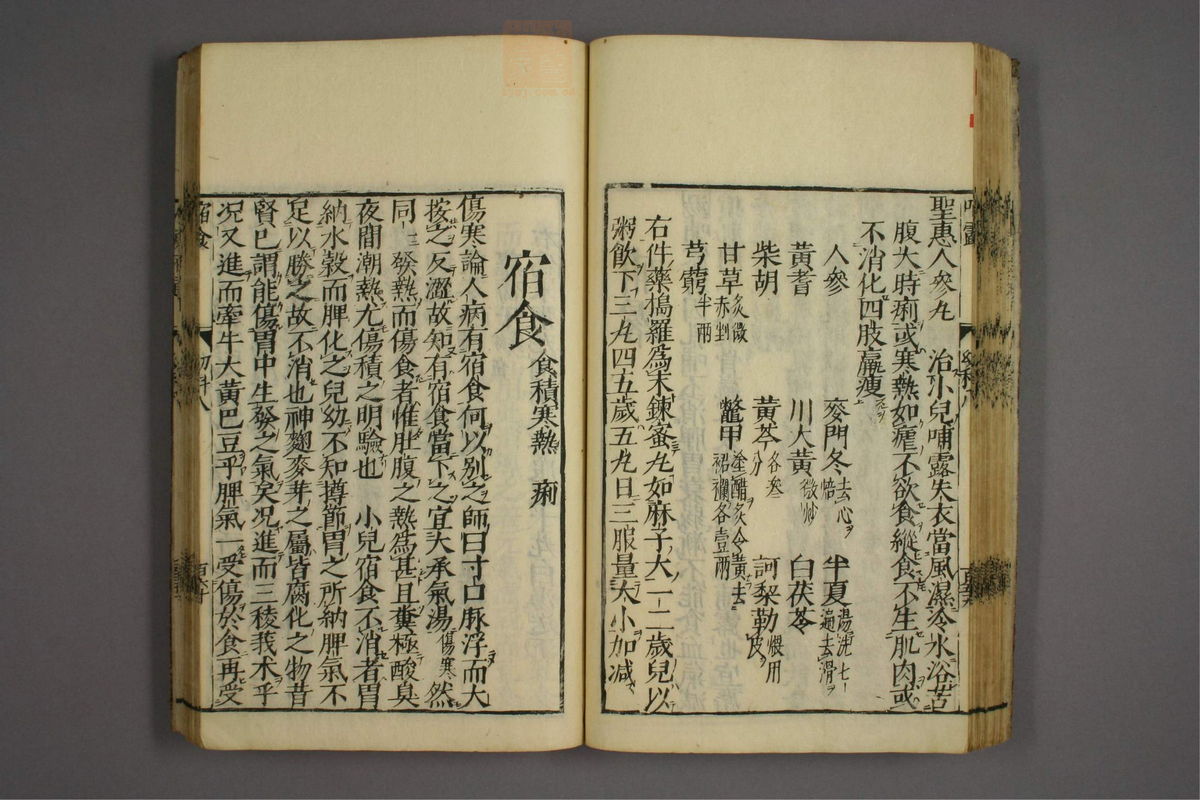 聖惠人參丸 治小兒哺露失衣當風濕冷水浴苦
腹大時痢或寒熱如瘧不欲食縱食不生肌肉或
不消化四肢羸瘦
人參 麥門冬去心焙 半夏湯洗七遍去滑
黃耆 川大黃微炒 白茯苓
柴胡 黃芩各叄分 訶梨勒煨用皮
甘草炙微赤剉 鼈甲塗醋炙令黃去裙襴各壹兩
芎藭半兩
右件藥搗羅為末鍊蜜丸如麻子大一二歲兒以
粥飲下三丸四五歲五丸日三服量大小加減
宿食 食積寒熱 痢
傷寒論人病有宿食何以別之師曰寸口脉浮而大
按之反澀故知有宿食當下之宜大承氣湯傷寒 然
同一發熱而傷食者惟肚腹之熱為甚且糞極酸臭
夜間潮熱尤傷積之明驗也 小兒宿食不消者胃
納水穀而脾化之兒幼不知撙節胃之所納脾氣不
足以勝之故不消也神麴麥芽之屬皆腐化之物昔
賢已謂能傷胃中生發之氣矣况進而三稜莪朮乎
况又進而牽牛大黃巴豆乎脾氣一受傷於食再受
宿食